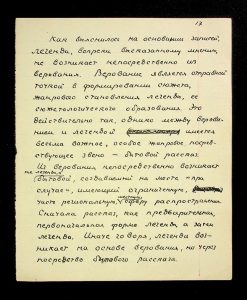 17
Как выяснилось на основании записей,
легенда, вопреки высказанному мнению,
не возникает непосредственно из
верования. Верование является отправной
точкой в формировании сюжета,
жанрового становления легенды, ее
сюжетологического образования. Это
действительно так, однако между верова-
нием и легендой имеется
весьма важное, особое жанровое посред-
ствующее звено – бытовой рассказ.
Из верования непосредственно возникает
не легенда, а
бытовой, создавшийся на месте "про
случае", имеющий ограниченную,
часто региональную, сферу распространения.
Сначала рассказ, как предварительная,
первоначальная форма легенды, а затем
легенда. Иначе говоря, легенда воз-
никает на основе верования, но через
посредство бытового рассказа.